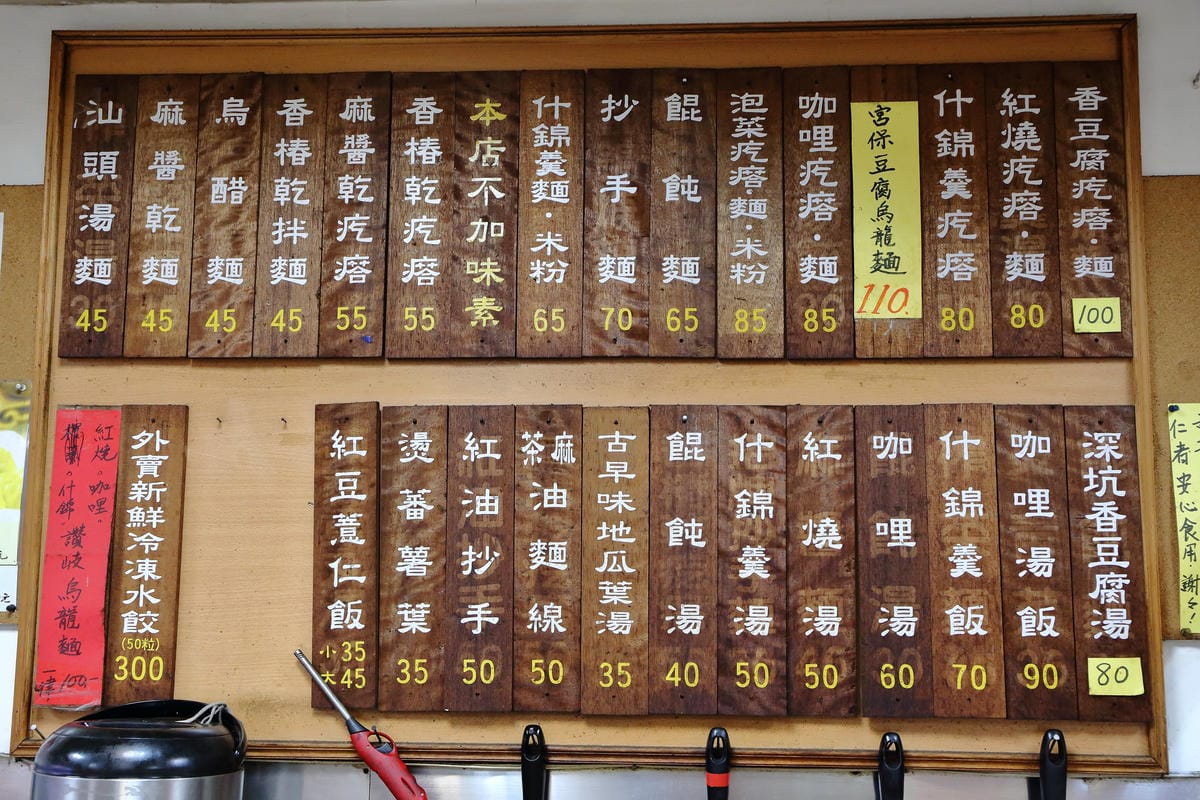 香豆腐疙瘩・麵
100
紅燒疙瘩・麵
80
什錦羹疙瘩
80
宮保豆腐烏龍麵
110.
咖哩疙瘩・麵
85
泡菜疙瘩麵・米粉
85
餛飩麵
65
抄手麵
70
什錦羹麵・米粉
65
本店不加味素
香椿乾疙瘩
55
麻醬乾疙瘩
55
香椿乾拌麵
45
烏醋麵
45
麻醬乾麵
45
汕頭湯麵
45
深坑香豆腐湯
80
咖哩湯飯
90
什錦羹飯
70
咖哩湯
60
紅燒湯
50
什錦羹湯
50
餛飩湯
40
古早味地瓜葉湯
35
麻茶油麵線
50
紅油抄手
50
燙蕃薯葉
35
紅豆薏仁飯
小35
大45
外賣新鮮冷凍水餃
(50粒)
300
紅燒。咖哩。
。什錦.讚岐烏龍麵
一律100.-
仁者安心食用,謝々!